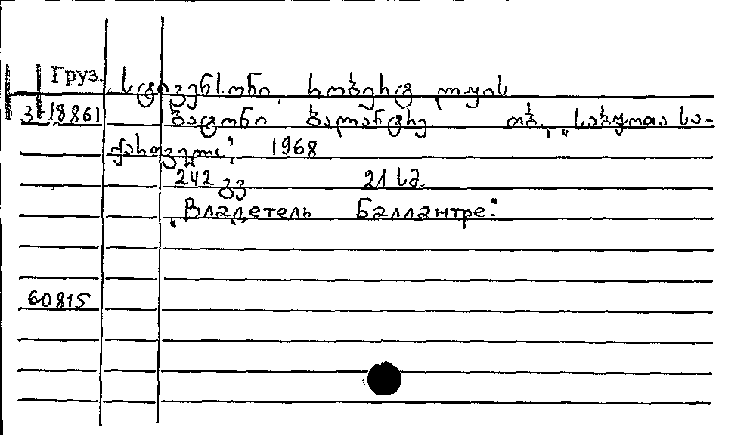 Груз. სტივენსონი, რობერტ ლუის
3/18861 ბატონი ბალანტრე თბ., „საბჭოთა სა-
ქართველო“, 1968
242 გვ 21 სმ.
„Владетель Баллантре“
60815